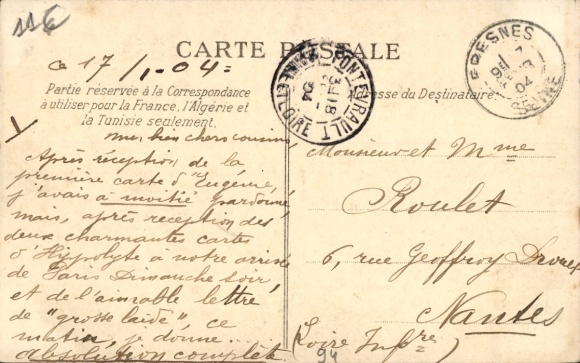 116
CARTE POSTALE
ce 17/1-04=
Partie réservée à la Correspondance
à utiliser pour la France, l'Algérie et
la Tunisie seulement.
Adresse du Destinataire.
FONTEVRAULT
MAINE-ET-LOIRE
18
04
FRESNES
SEINE
04
mes bien chers cousins,
Après réception de la
première carte d'Eugénie,
j'avais à moitié pardonné,
mais, après reception des
deux charmantes cartes
d'Hippolyte à notre arrivée
de Paris Dimanche soir,
et de l'aimable lettre
de "grosse laide", ce
matin, je donne...
absolution complète
Monsieur et Mme
Roulet
6, rue Geoffroy Drouet
Nantes
(Loire Infre)
94